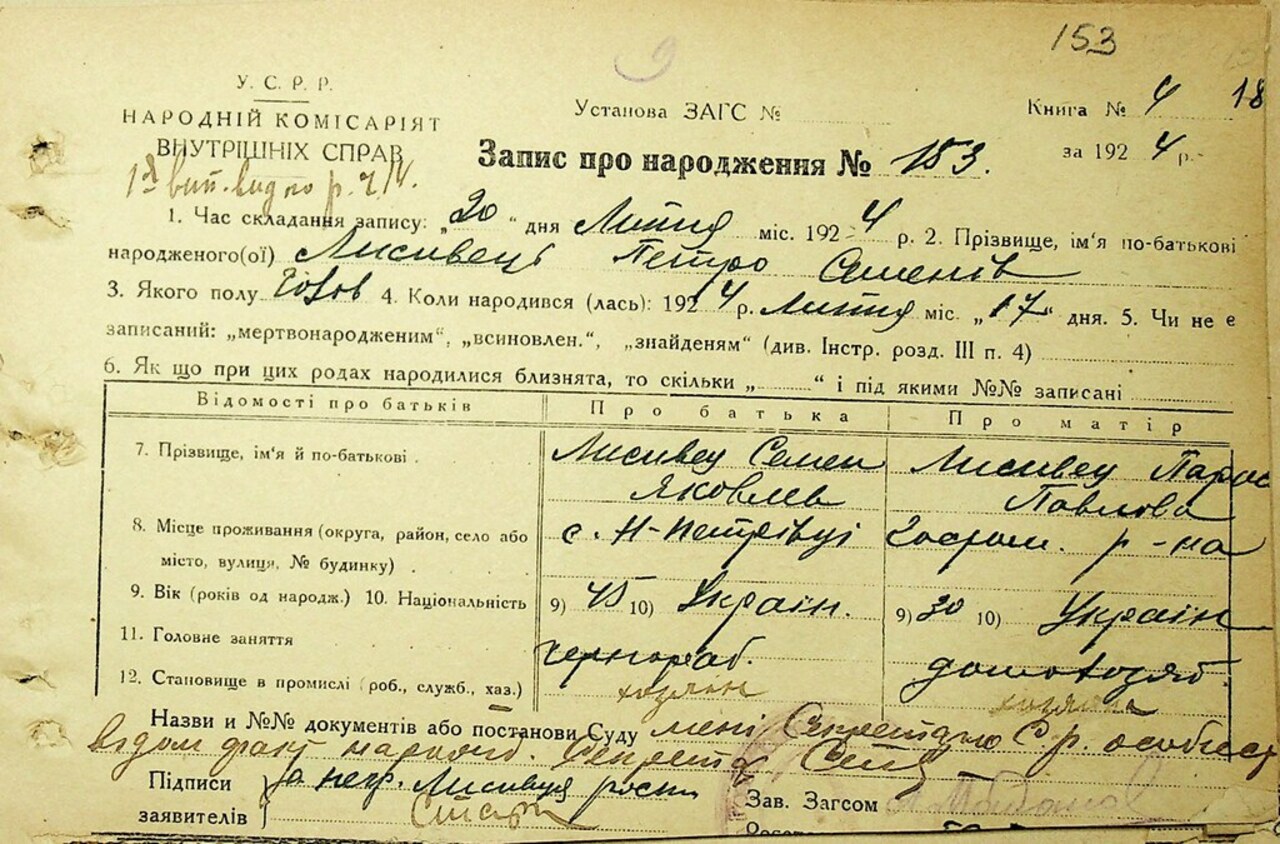 153
У. С. Р. Р.
НАРОДНІЙ КОМІСАРІЯТ
ВНУТРІШНІХ СПРАВ
Установа ЗАГС №
Книга № 4 18
за 1924 р.
Запис про народження № 153.
1. Час складання запису: „20“ дня Лютня міс. 1924 р. 2. Прізвище, ім'я по-батькові
народженого(ої) Лисивець Петро Семенів
3. Якого полу Чолов 4. Коли народився (лась): 1924 р. Лютня міс. „17“ дня. 5. Чи не є
записаний: „мертвонародженим“, „всиновлен.“, „знайденям“ (див. Інстр. розд. III п. 4)
6. Як що при цих родах народилися близнята, то скільки „ “ і під якими №№ записані
Відомості про батьків Про батька Про матір
7. Прізвище, ім'я й по-батькові . Лисивец Семен Лисивец Парас
Яковлев Павлова
8. Місце проживання (округа, район, село або с. Н-Петрівці р-на
місто, вулиця, № будинку) .
9. Вік (років од народж.) 10. Національність 9) 45 10) Украін. 9) 30 10) Украін
11. Головне заняття чернораб. домохозяб.
12. Становище в промислі (роб., служб., хаз.) хозяін
Назви и №№ документів або постанови Суду мені Секретарю С р. особист
відом факт народж. Секрет
Підписи за негр. Лисивця росп.
заявителів
Зав. Загсом